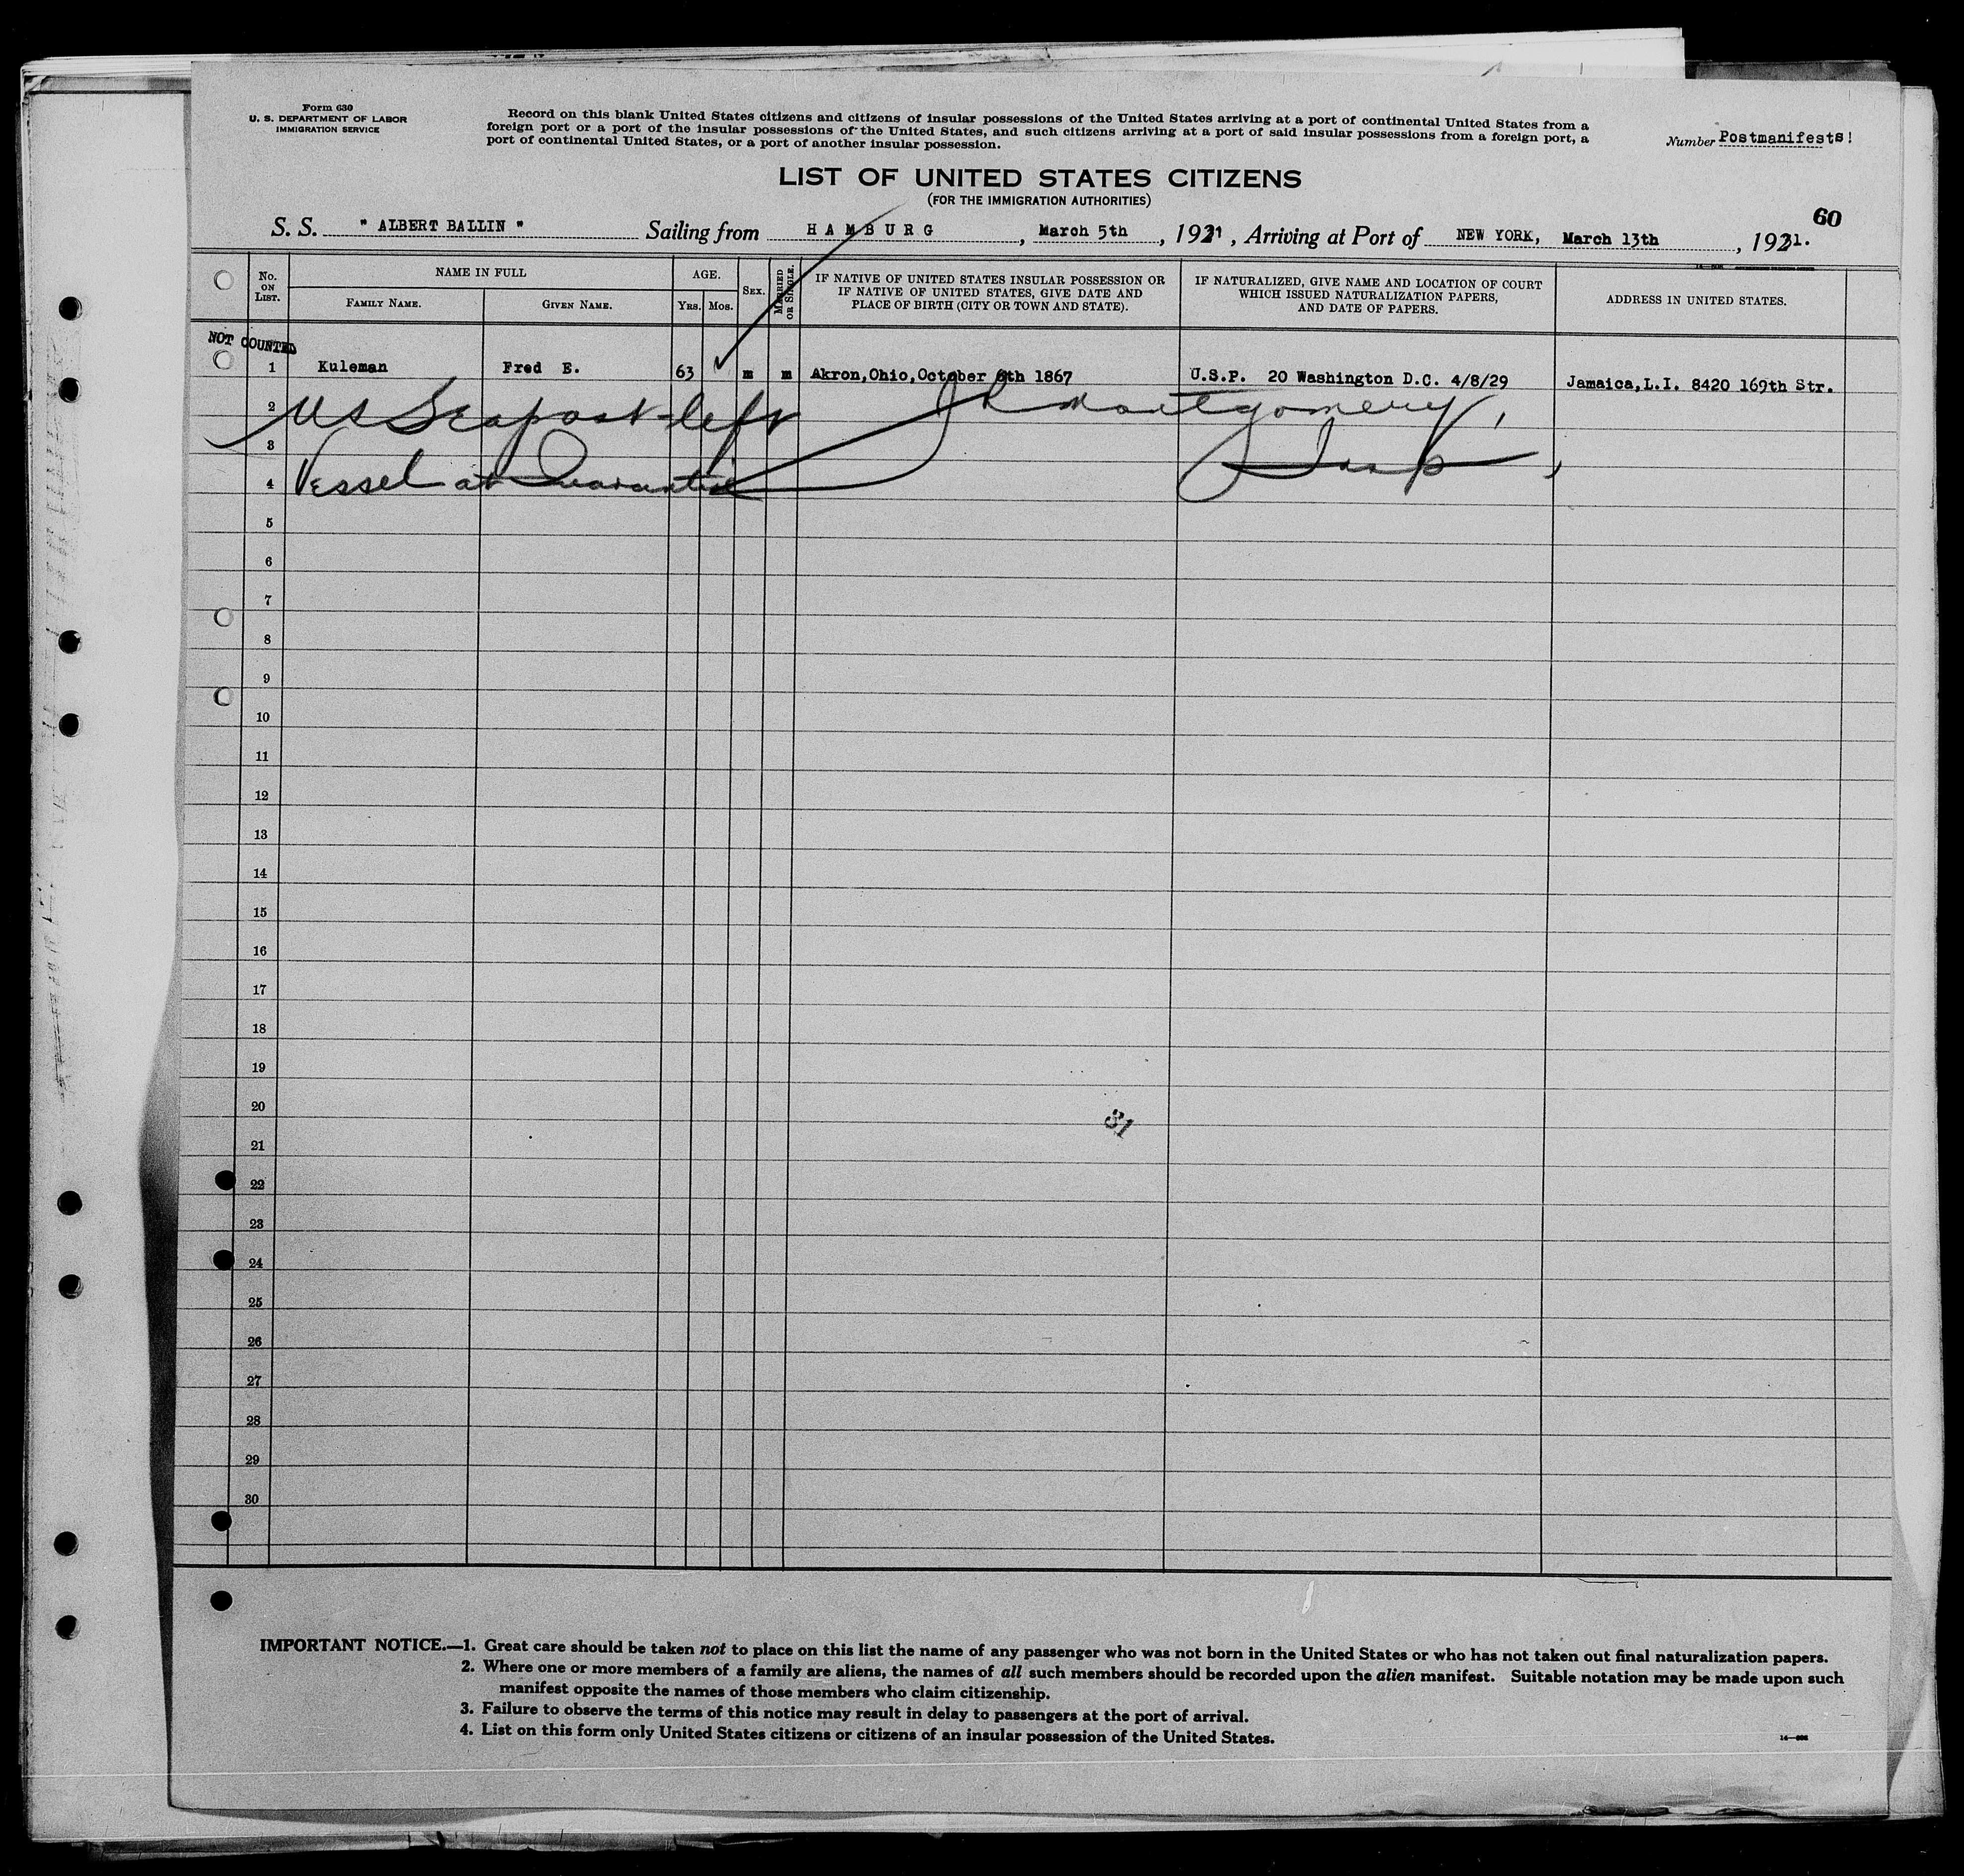 Form 630
U. S. DEPARTMENT OF LABOR
IMMIGRATION SERVICE
Record on this blank United States citizens and citizens of insular possessions of the United States arriving at a port of continental United States from a
foreign port or a port of the insular possessions of the United States, and such citizens arriving at a port of said insular possessions from a foreign port, a
port of continental United States, or a port of another insular possession.
Number Postmanifests!
LIST OF UNITED STATES CITIZENS
(FOR THE IMMIGRATION AUTHORITIES)
60
S. S. " ALBERT BALLIN " Sailing from HAMBURG, March 5th, 1931, Arriving at Port of NEW YORK, March 13th, 1931.
No. ON LIST.
NAME IN FULL
FAMILY NAME.
GIVEN NAME.
AGE.
YRS.
MOS.
SEX.
MARRIED OR SINGLE.
IF NATIVE OF UNITED STATES INSULAR POSSESSION OR
IF NATIVE OF UNITED STATES, GIVE DATE AND
PLACE OF BIRTH (CITY OR TOWN AND STATE).
IF NATURALIZED, GIVE NAME AND LOCATION OF COURT
WHICH ISSUED NATURALIZATION PAPERS,
AND DATE OF PAPERS.
ADDRESS IN UNITED STATES.
NOT COUNTED
1 Kuleman Fred E. 63 m m Akron,Ohio,October 6th 1867 U.S.P. 20 Washington D.C. 4/8/29 Jamaica,L.I. 8420 169th Str.
2 US Seapost - left Montgomery,
3 Insp,
4 Vessel at Quarantine
5
6
7
8
9
10
11
12
13
14
15
16
17
18
19
20
31
21
22
23
24
25
26
27
28
29
30
IMPORTANT NOTICE.—1. Great care should be taken not to place on this list the name of any passenger who was not born in the United States or who has not taken out final naturalization papers.
2. Where one or more members of a family are aliens, the names of all such members should be recorded upon the alien manifest. Suitable notation may be made upon such
manifest opposite the names of those members who claim citizenship.
3. Failure to observe the terms of this notice may result in delay to passengers at the port of arrival.
4. List on this form only United States citizens or citizens of an insular possession of the United States.